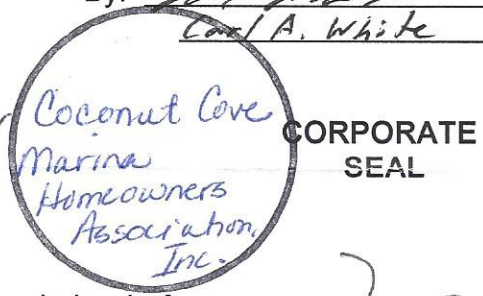 By:
Carl A. White
Coconut Cove
Marina
Homeowners
Association,
Inc.
CORPORATE
SEAL